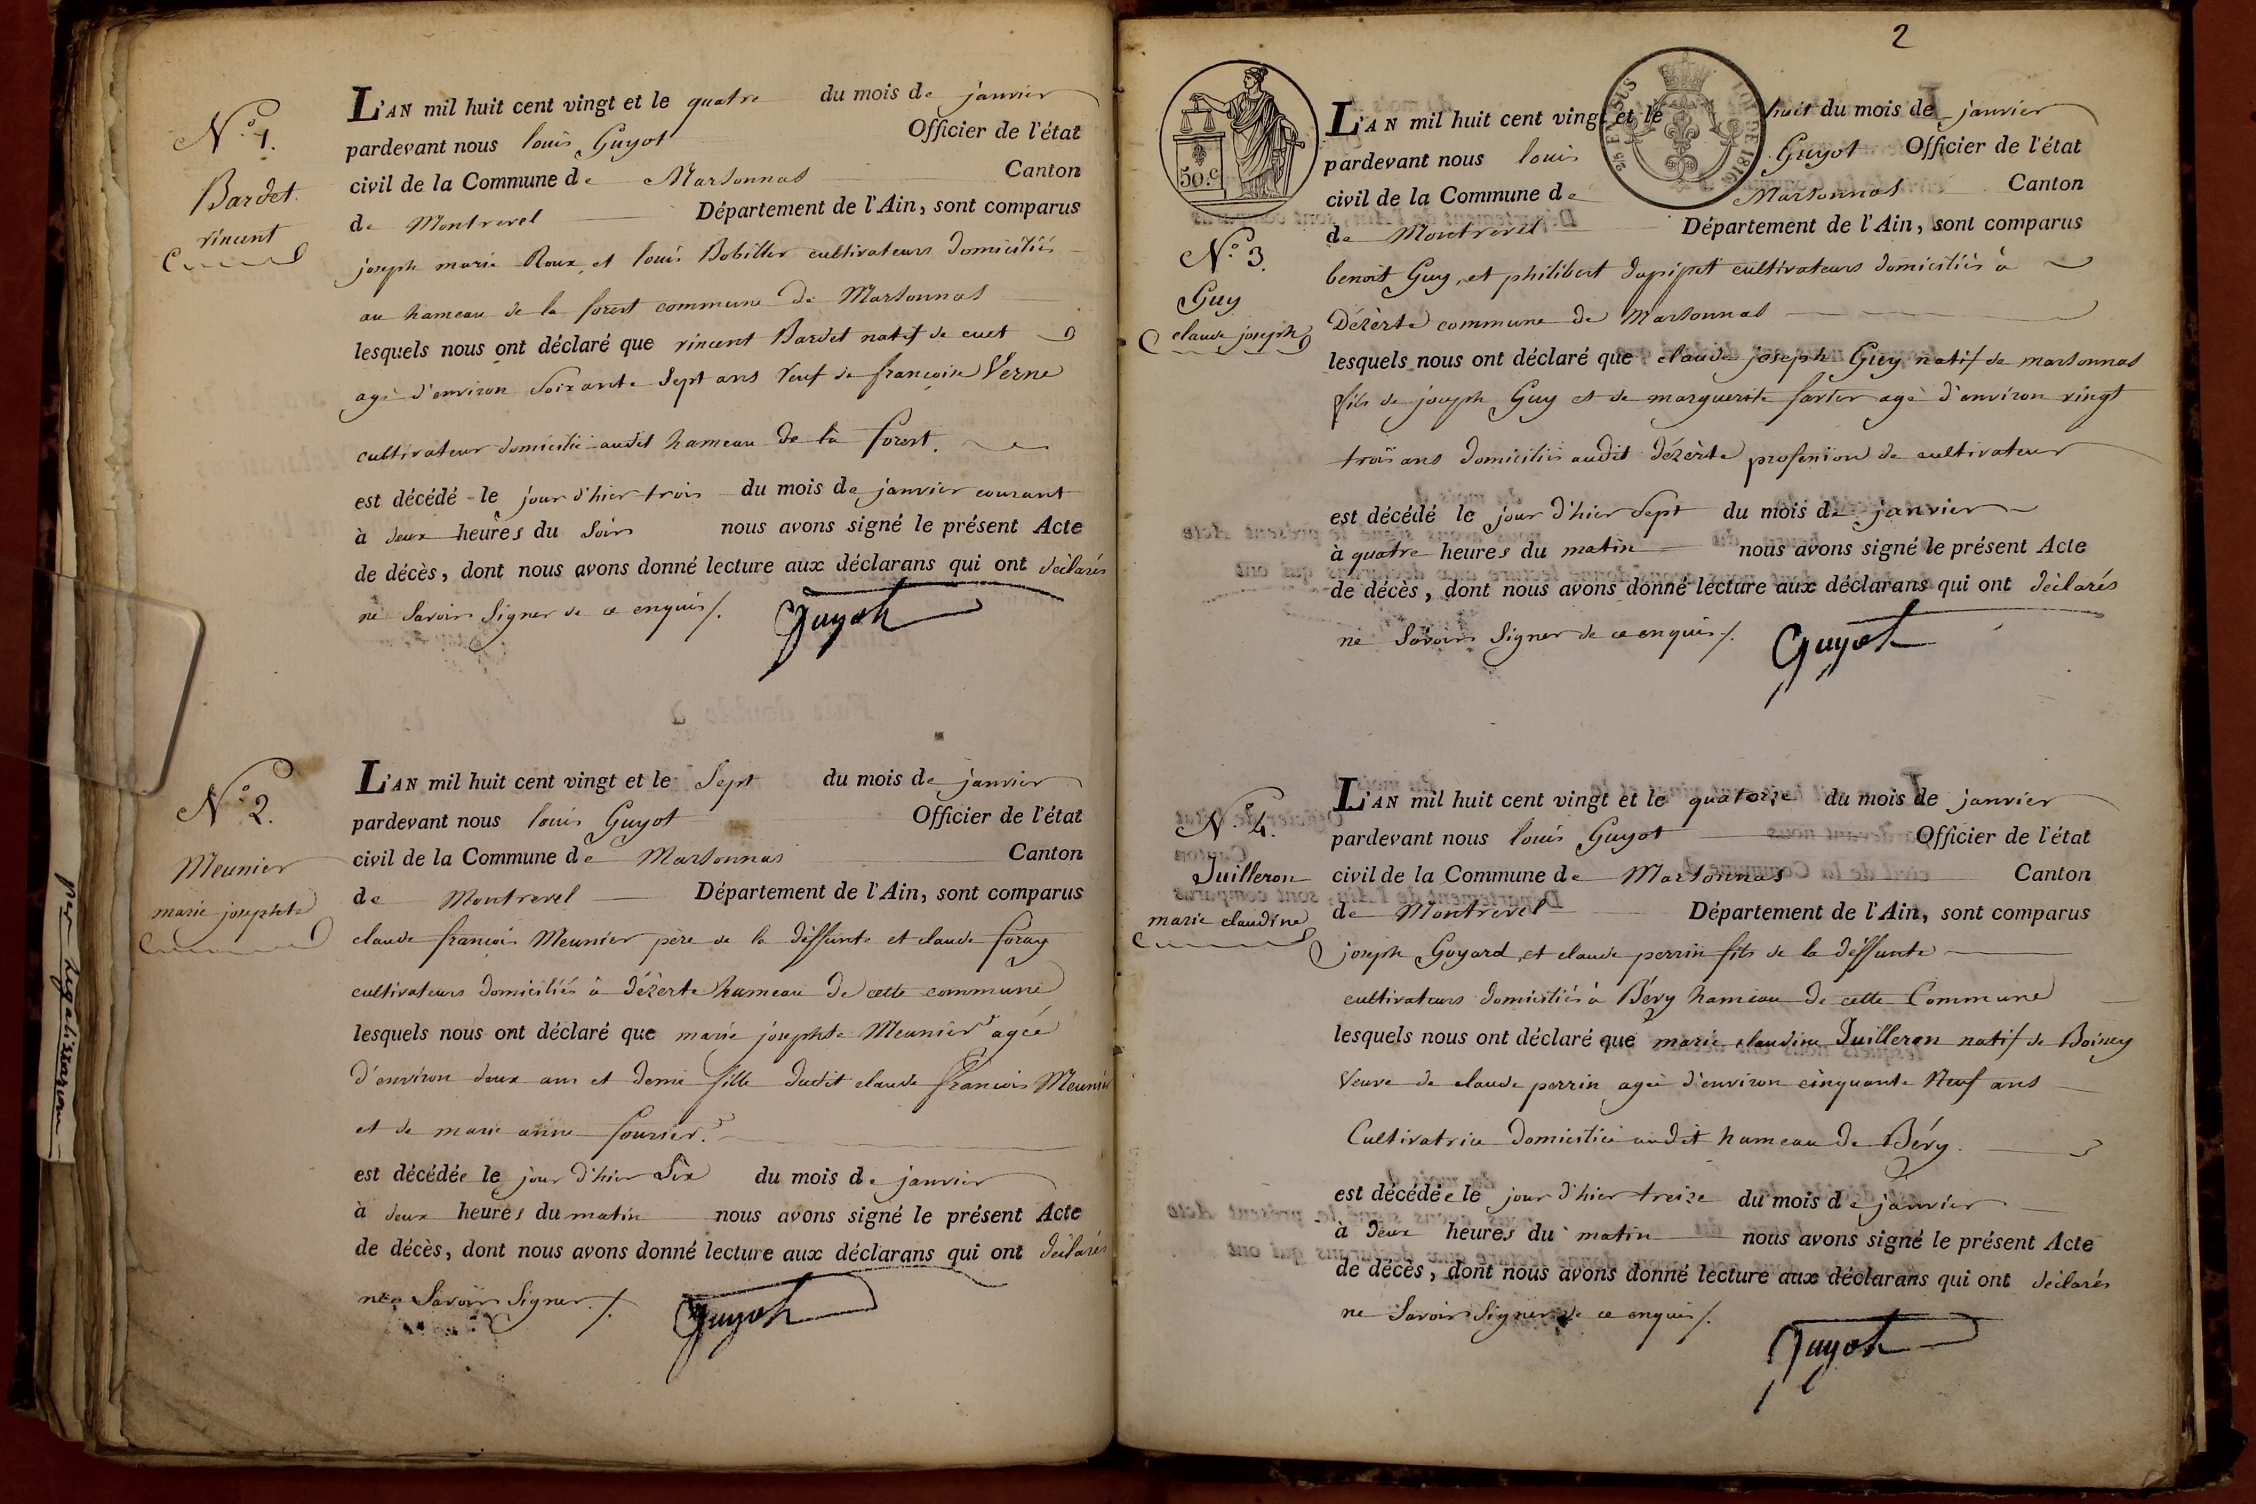 N.º 1.
Bardet
vincent
L'AN mil huit cent vingt et le quatre du mois de janvier
pardevant nous louis Guyot Officier de l'état
civil de la Commune de Marsonnas Canton
de Montrevel Département de l'Ain, sont comparus
joseph marie Roux, et louis Bobillon cultivateurs domiciliés
au hameau de la forest commune de Marsonnas
lesquels nous ont déclaré que vincent Bardet natif de cuet
agé d'environ soixante sept ans veuf de françoise Verne
cultivateur domicilié audit hameau de la forest.
est décédé le jour d'hier trois du mois de janvier courant
à deux heures du soir nous avons signé le présent Acte
de décès, dont nous avons donné lecture aux déclarans qui ont déclarés
ne savoir signer de ce enquis /. Guyot
N.º 2.
Meunier
marie josephte
L'AN mil huit cent vingt et le sept du mois de janvier
pardevant nous louis Guyot Officier de l'état
civil de la Commune de Marsonnas Canton
de Montrevel Département de l'Ain, sont comparus
claude françois Meunier père de la deffunte et claude foray
cultivateurs domiciliés à dézerte hameau de cette commune
lesquels nous ont déclaré que marie josephte Meunier agée
d'environ deux ans et demie fille dudit claude françois Meunier
et de marie anne fournier.
est décédée le jour d'hier six du mois de janvier
à deux heures du matin nous avons signé le présent Acte
de décès, dont nous avons donné lecture aux déclarans qui ont déclarés
ne savoir signer. /. Guyot
per Legalisation
2
50.c
N.º 3.
Guy
claude joseph
L'AN mil huit cent vingt et le huit du mois de janvier
pardevant nous louis Guyot Officier de l'état
civil de la Commune de Marsonnas Canton
de Montrevel Département de l'Ain, sont comparus
benoit Guy, et philibert dupipet cultivateurs domiciliés à
Dézèrte commune de Marsonnas
lesquels nous ont déclaré que claude joseph Guy natif de marsonnas
fils de joseph Guy et de marguerite agé d'environ vingt
trois ans domiciliés audit dézèrte profession de cultivateur
est décédé le jour d'hier sept du mois de janvier
à quatre heures du matin nous avons signé le présent Acte
de décès, dont nous avons donné lecture aux déclarans qui ont déclarés
ne savoir signer de ce enquis /. Guyot
N.º 4.
Juilleron
marie claudine
L'AN mil huit cent vingt et le quatorze du mois de janvier
pardevant nous louis Guyot Officier de l'état
civil de la Commune de Marsonnas Canton
de Montrevel Département de l'Ain, sont comparus
joseph Goyard, et claude perrin fils de la déffunte
cultivateurs domiciliés à Béry hameau de cette Commune
lesquels nous ont déclaré que marie claudine Juilleron natif de
Veuve de claude perrin agée d'environ cinquante Neuf ans
Cultivatrice domiciliée audit hameau de Béry.
est décédée le jour d'hier treize du mois de janvier
à deux heures du matin nous avons signé le présent Acte
de décès, dont nous avons donné lecture aux déclarans qui ont déclarés
ne savoir signer de ce enquis /.
Guyot